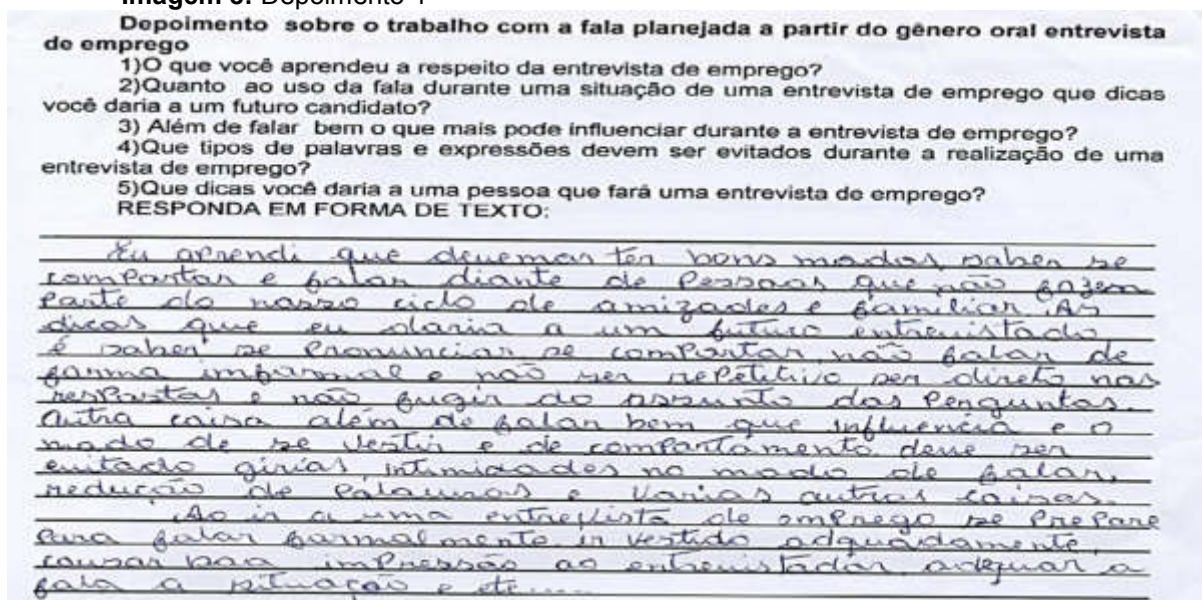 Imagem 3: Depoimento 1
Depoimento sobre o trabalho com a fala planejada a partir do gênero oral entrevista
de emprego
1)O que você aprendeu a respeito da entrevista de emprego?
2)Quanto ao uso da fala durante uma situação de uma entrevista de emprego que dicas
você daria a um futuro candidato?
3) Além de falar bem o que mais pode influenciar durante a entrevista de emprego?
4)Que tipos de palavras e expressões devem ser evitados durante a realização de uma
entrevista de emprego?
5)Que dicas você daria a uma pessoa que fará uma entrevista de emprego?
RESPONDA EM FORMA DE TEXTO:
Eu aprendi que devemos ter bons modos, saber se
comportar e falar diante de Pessoas que não fazem
Parte do nosso ciclo de amizades e familiar. As
dicas que eu daria a um futuro entrevistado
é saber se Pronunciar se comportar, não falar de
forma imformal e não ser repetitivo ser direto nas
respostas e não fugir do assunto das Perguntas.
Outra coisa além de falar bem que influencia e o
modo de se vestir e de comportamento deve ser
evitado girias, intimidades no modo de falar,
redução de Palavras e varias outras coisas.
Ao ir a uma entrevista de emprego se Prepare
Para falar formalmente, ir vestido adquadamente,
causar boa impressão ao entrevistador, adequar a
fala a situação e etc....